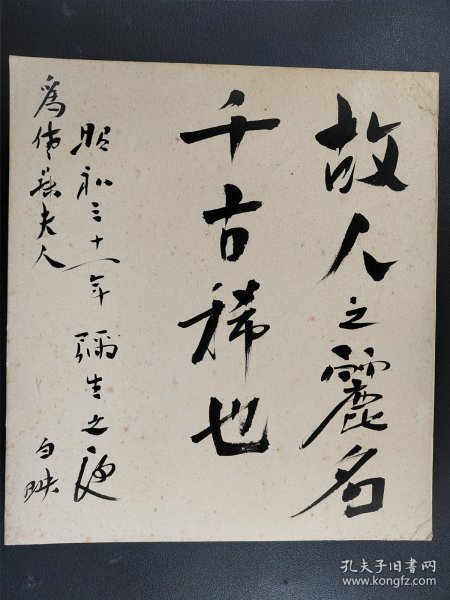 故人之麗名
千古稀也
昭和三十一年 彌生之夜
為佐藤夫人
白映
孔夫子旧书网
www.kongfz.com